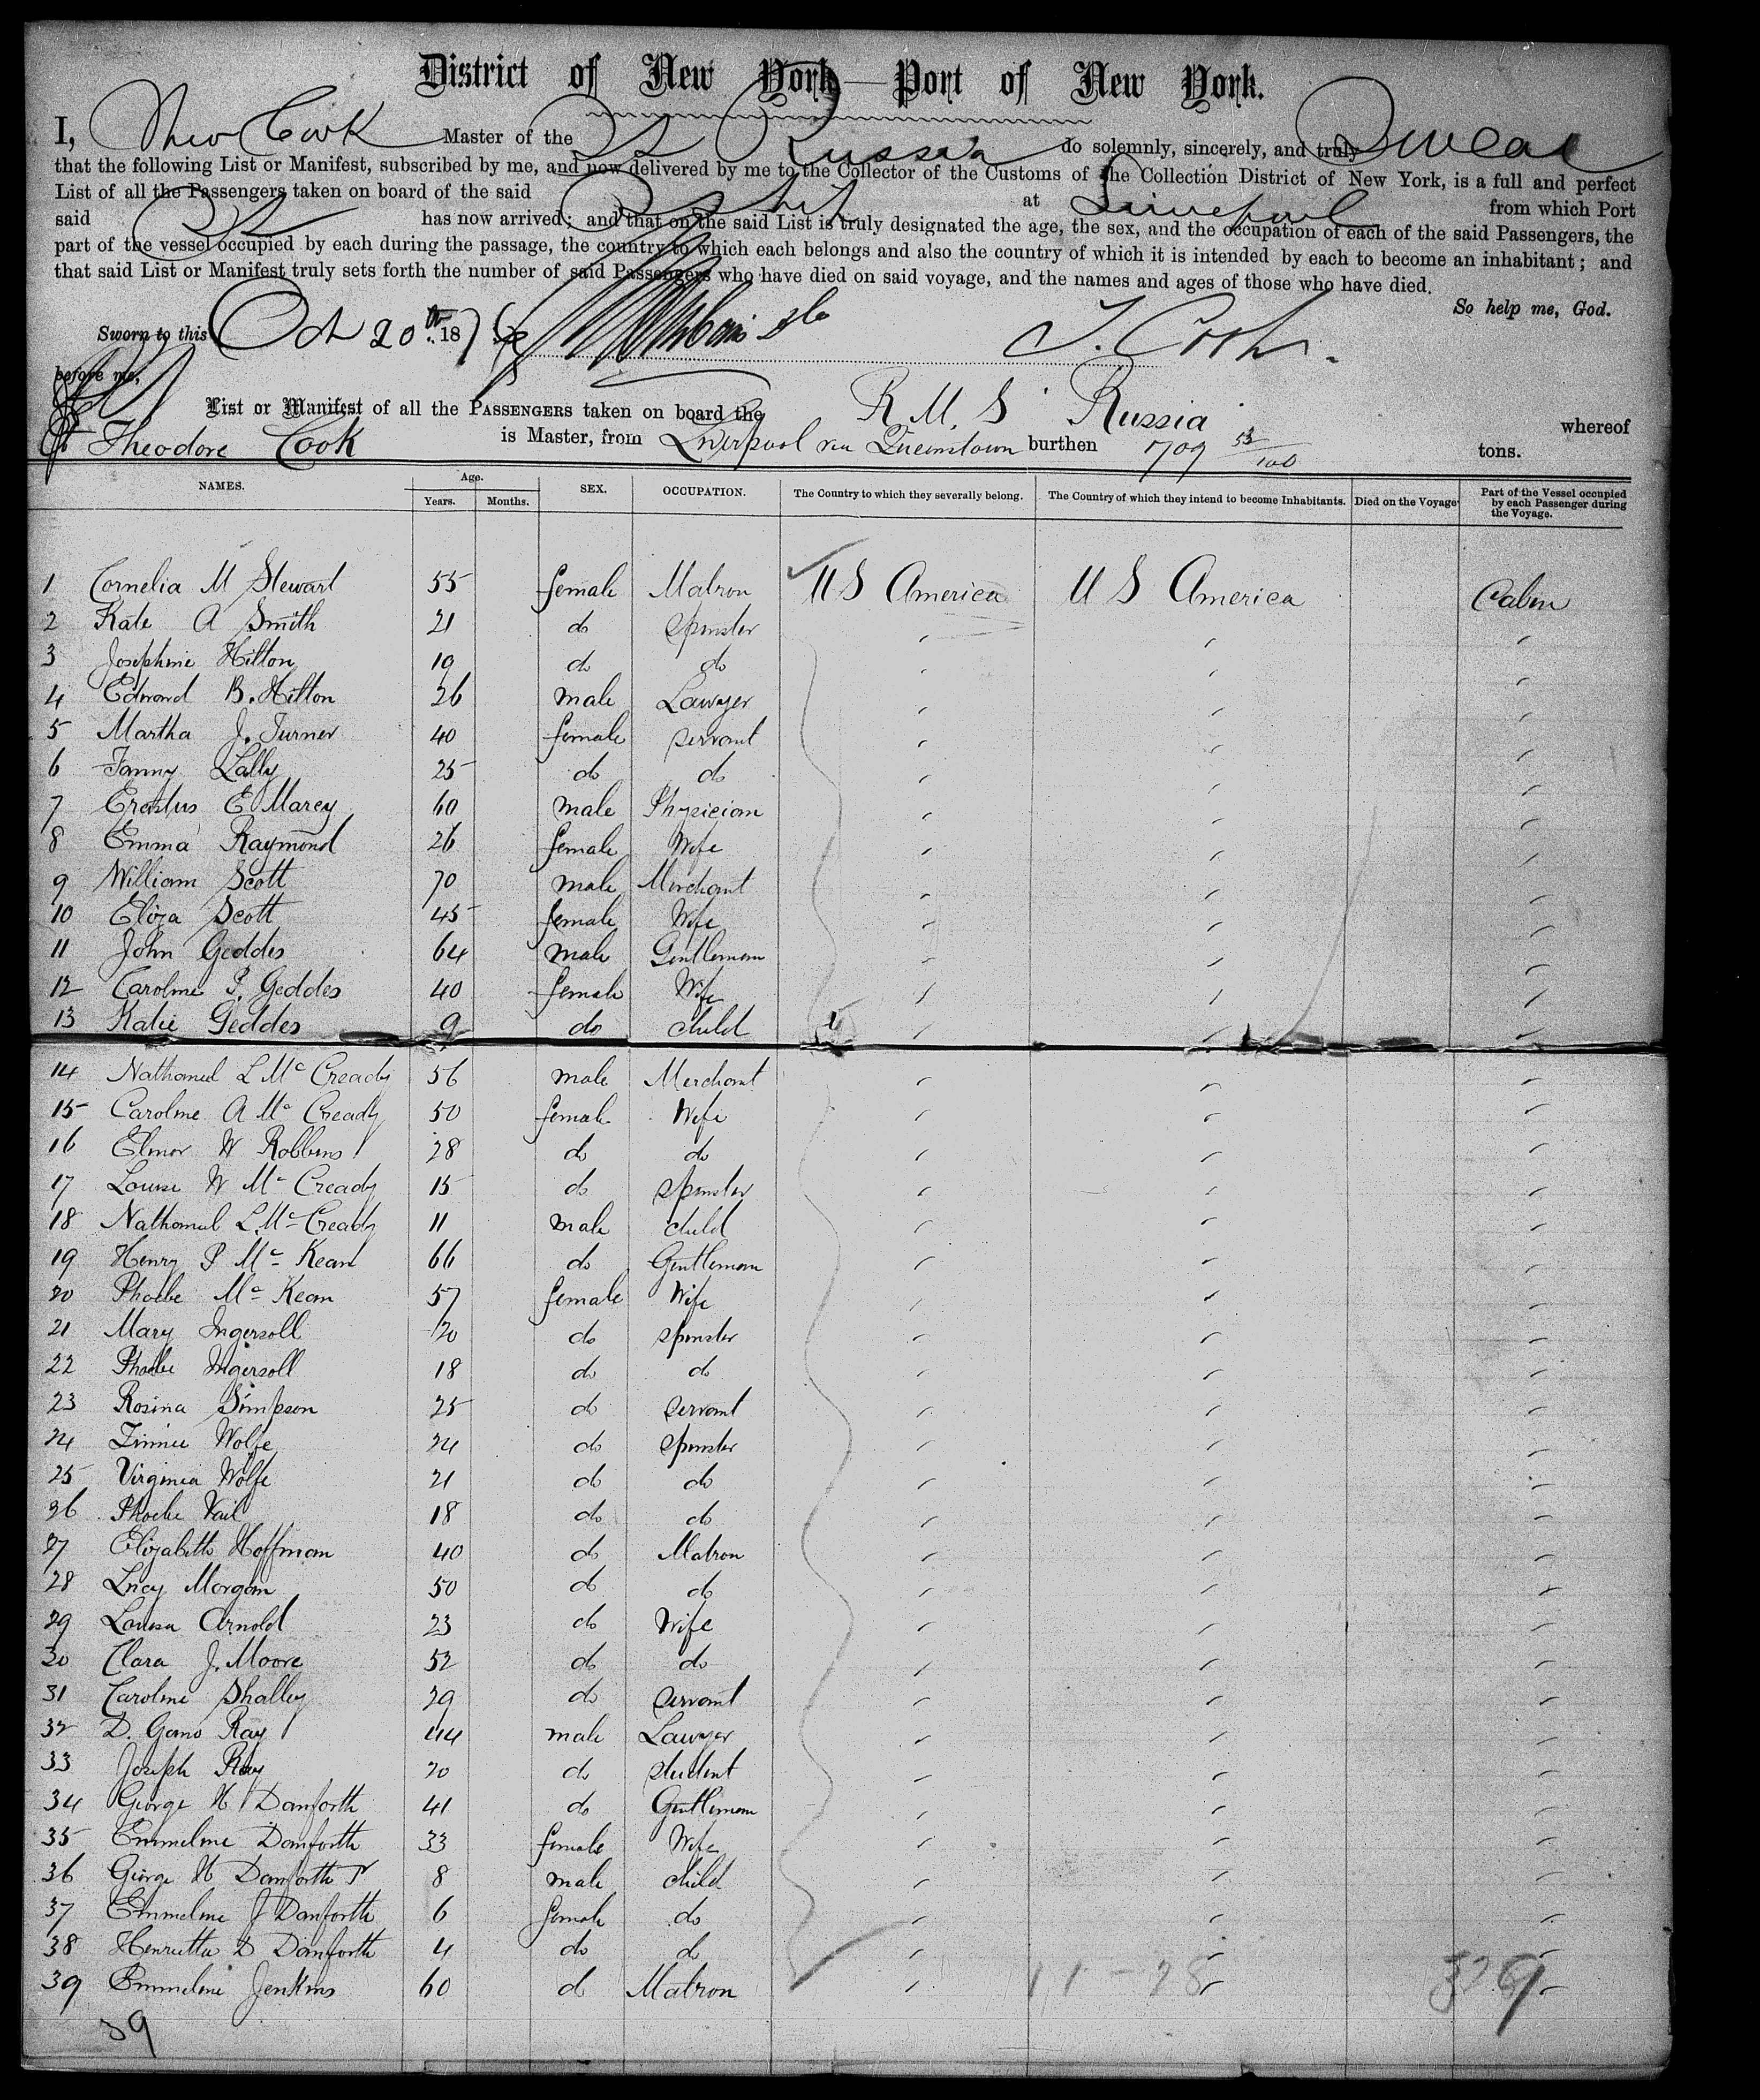 District of New York—Port of New York.
I, Theo Cook Master of the SS Russia do solemnly, sincerely, and truly Swear
that the following List or Manifest, subscribed by me, and now delivered by me to the Collector of the Customs of the Collection District of New York, is a full and perfect
List of all the Passengers taken on board of the said SShip at Liverpool from which Port
said SS has now arrived; and that on the said List is truly designated the age, the sex, and the occupation of each of the said Passengers, the
part of the vessel occupied by each during the passage, the country to which each belongs and also the country of which it is intended by each to become an inhabitant; and
that said List or Manifest truly sets forth the number of said Passengers who have died on said voyage, and the names and ages of those who have died.
So help me, God.
Sworn to this Oct 20th 1876 T. Cook.
before me,
List or Manifest of all the PASSENGERS taken on board the R.M.S Russia whereof
Theodore Cook is Master, from Liverpool via Queenstown burthen 1709 53/100 tons.
NAMES. Age. Years. Months. SEX. OCCUPATION. The Country to which they severally belong. The Country of which they intend to become Inhabitants. Died on the Voyage Part of the Vessel occupied by each Passenger during the Voyage.
1 Cornelia M Stewart 55 female Matron U S America U S America Cabin
2 Kate A Smith 21 do Spinster
3 Josephine Hilton 19 do do
4 Edward B. Hilton 26 male Lawyer
5 Martha J. Turner 40 female servant
6 Fanny Lally 25 do do
7 Erastus E Marcy 60 male Physician
8 Emma Raymond 26 female Wife
9 William Scott 70 male Merchant
10 Eliza Scott 45 female Wife
11 John Geddes 64 male Gentleman
12 Caroline P. Geddes 40 female Wife
13 Katie Geddes 9 do child
14 Nathaniel L Mc Cready 56 male Merchant
15 Caroline A Mc Cready 50 female Wife
16 Elinor W Robbins 28 do do
17 Louise W Mc Cready 15 do spinster
18 Nathaniel L Mc Cready 11 male child
19 Henry P Mc Kean 66 do Gentleman
20 Phoebe Mc Kean 57 female Wife
21 Mary Ingersoll 20 do spinster
22 Phoebe Ingersoll 18 do do
23 Rosina Simpson 25 do servant
24 Linnie Wolfe 24 do spinster
25 Virginia Wolfe 21 do do
26 Phoebe Vail 18 do do
27 Elizabeth Hoffman 40 do Matron
28 Lucy Morgan 50 do do
29 Louisa Arnold 23 do Wife
30 Clara J. Moore 52 do do
31 Caroline Shalley 29 do servant
32 D. Gano Ray 44 male Lawyer
33 Joseph Ray 20 do student
34 George H Danforth 41 do Gentleman
35 Emmeline Danforth 33 female Wife
36 George H Danforth Jr 8 male child
37 Emmeline J Danforth 6 female do
38 Henrietta D Danforth 4 do do
39 Emmeline Jenkins 60 d Matron
11-28
39